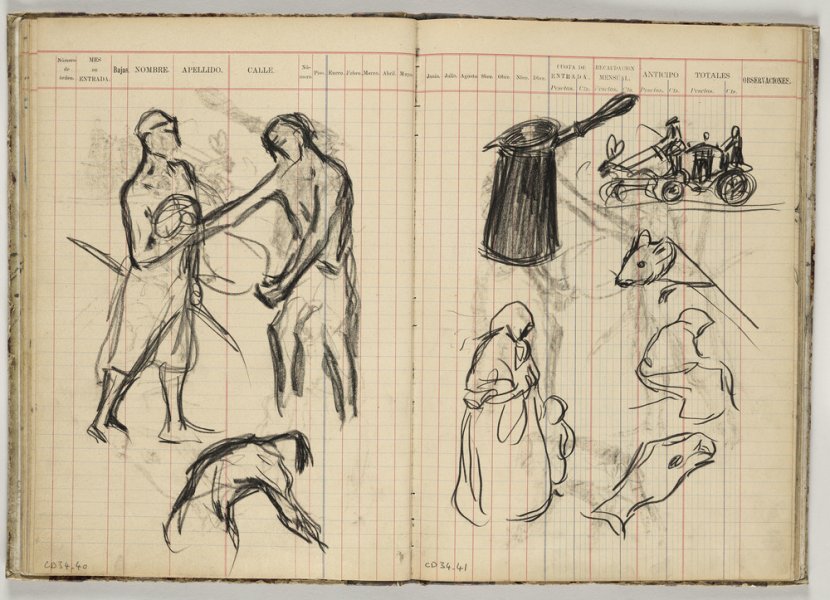 Número de órden.
MES DE ENTRADA.
Bajas.
NOMBRE.
APELLIDO.
CALLE.
Número.
Piso.
Enero.
Febro.
Marzo.
Abril.
Mayo.
Junio.
Julio.
Agosto
Sbre.
Obre.
Nbre.
Dbre.
CUOTA DE ENTRADA.
Pesetas.
Cts.
RECAUDACION MENSUAL.
Pesetas.
Cts.
ANTICIPO
Pesetas.
Cts.
TOTALES
Pesetas.
Cts.
OBSERVACIONES.
CD34_40
CD34_41